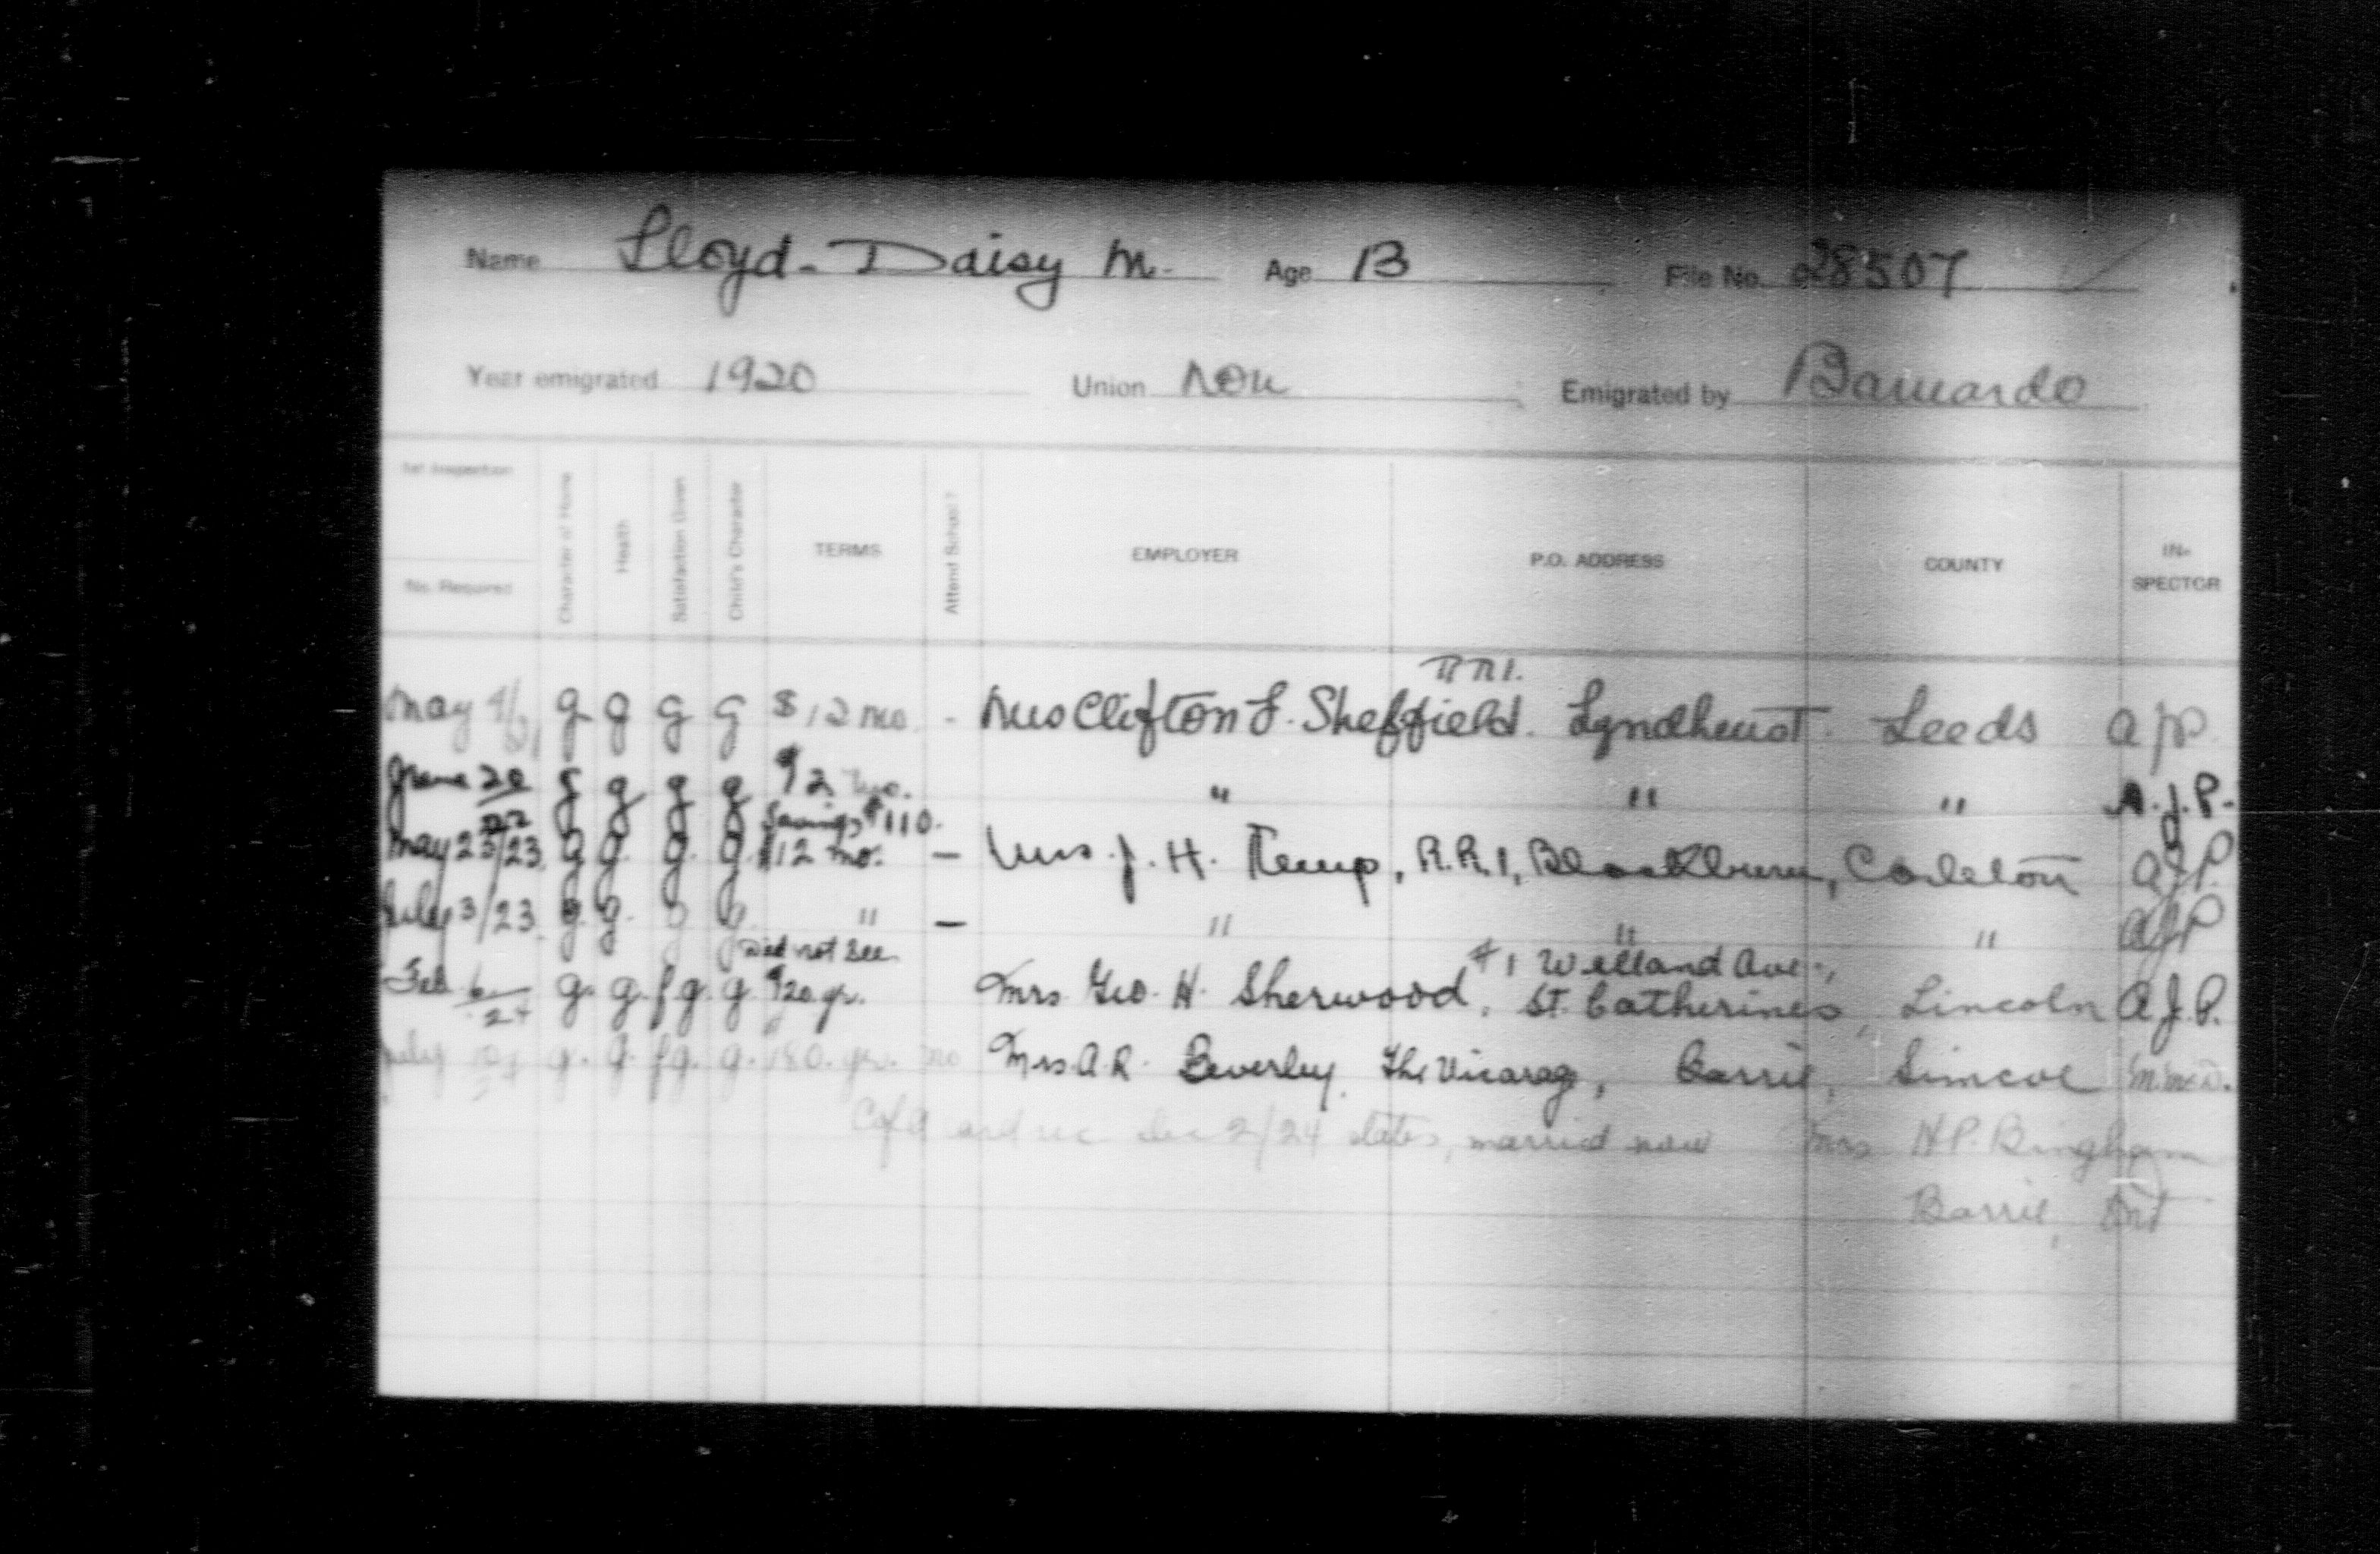 Name Lloyd - Daisy M. Age 13 File No. 28507
Year emigrated 1920 Union Non Emigrated by Barnardo
1st Inspection
No. Required
Character of Home
Health
Satisfaction Given
Child's Character
TERMS
Attend School?
EMPLOYER
P.O. ADDRESS
COUNTY
IN-SPECTOR
R R 1.
May 4/21 g g g g $12 mo. - Mrs Clifton L. Sheffield. Lyndhurst. Leeds AJP
June 20/22 g g g g $12 mo. " " " A.J.P.
Savings $110.
May 25/23 g g. g. g. $12 mo. - Mrs. J. H. Kemp, R.R.1, Blackburn, Carleton AJP.
July 3/23. g. g. g g " - " " " AJP
Did not see. #1 Welland Ave.,
Feb. 6/24 g. g. fg. g. $20 yr. Mrs. Geo. H. Sherwood, St. Catherines, Lincoln A.J.P.
July g. g. fg. g. 180. yr. no Mrs. A. R. Beverley. The Vicarage, Barrie, Simcoe
card rec Dec 2/24 states, married now Mrs H.P. Bingham
Barrie, Ont